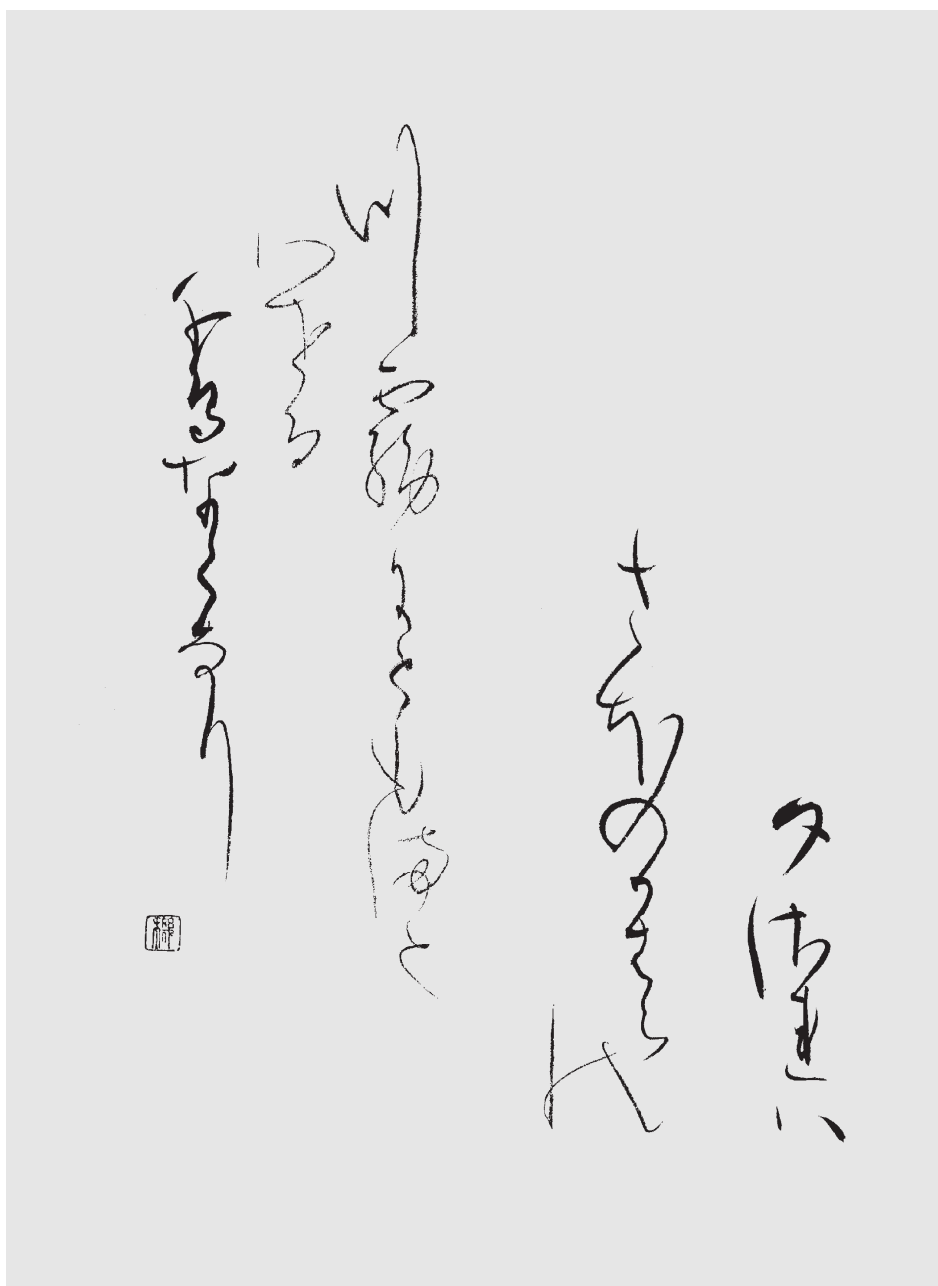 夕佐連八
さほのかはらの
川霧にとも満と
はせる
千鳥なくなり